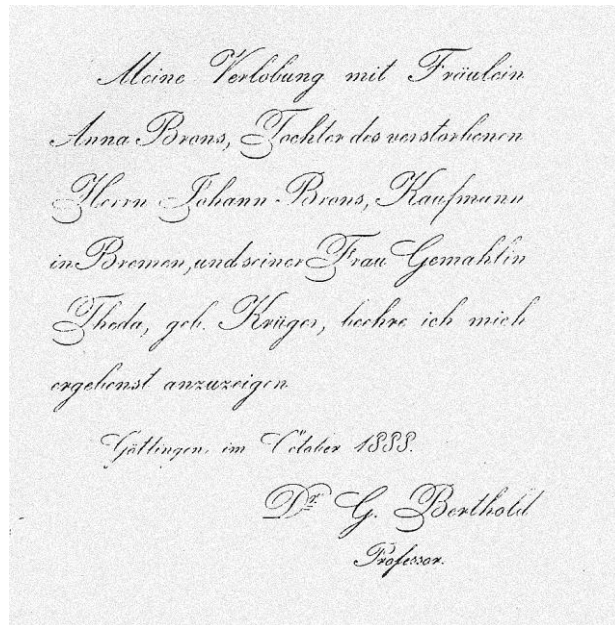 Meine Verlobung mit Fräulein
Anna Brons, Tochter des verstorbenen
Herrn Johann Brons, Kaufmann
in Bremen, und seiner Frau Gemahlin
Theda, geb. Krüger, beehre ich mich
ergebenst anzuzeigen
Göttingen, im October 1888.
Dr. G. Berthold
Professor.